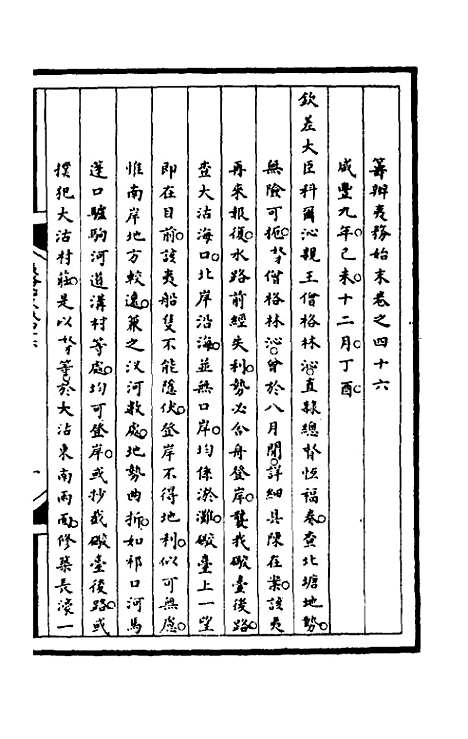 籌辦夷務始末卷之四十六
咸豐九年己未十二月丁酉
欽差大臣科爾沁親王僧格林沁直隸總督恆福奏查北塘地勢
無險可扼。奴才僧格林沁曾於八月間詳細具陳在案該夷
再來報復。水路前經失利。勢必舍舟登岸。襲我礮臺後路。
查大沽海口。北岸沿海。並無口岸。均係淤灘。礮臺上一望
即在目前。該夷船隻不能隱伏。登岸不得地利。似可無慮。
惟南岸地方較遠。兼之汊河數處。地勢曲折。如祁口河馬
蓬口驢駒河道溝村等處。均可登岸。或抄截礮臺後路。或
撲犯大沽村莊。是以奴才等於大沽東南兩面。修築長濠一